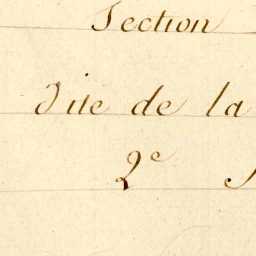 Section
Dite de la
2e